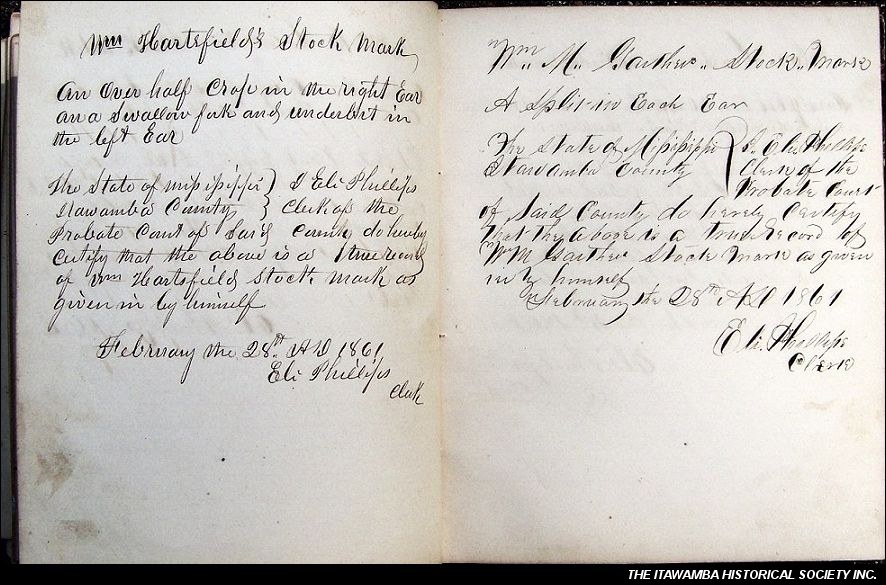 Wm Hartsfield's Stock Mark
An Over half Crop in the right Ear
an a Swallow fork and underbit in
the left Ear
The State of Mississippi } I Eli Phillips
Itawamba County } Clerk of the
Probate Court of Said County do hereby
certify that the above is a true record
of Wm Hartsfield Stock Mark as
given in by himself
February the 28th AD 1861
Eli Phillips
Clerk
Wm. M. Stock Mark
A Split in Each Ear
The State of Mississippi } I. Eli Phillips
Itawamba County } Clerk of the
Probate Court
of Said County do hereby Certify
that the above is a true record of
Wm Stock Mark as given
in by himself
February the 28th AD 1861
Eli. Phillips
Clerk
THE ITAWAMBA HISTORICAL SOCIETY INC.